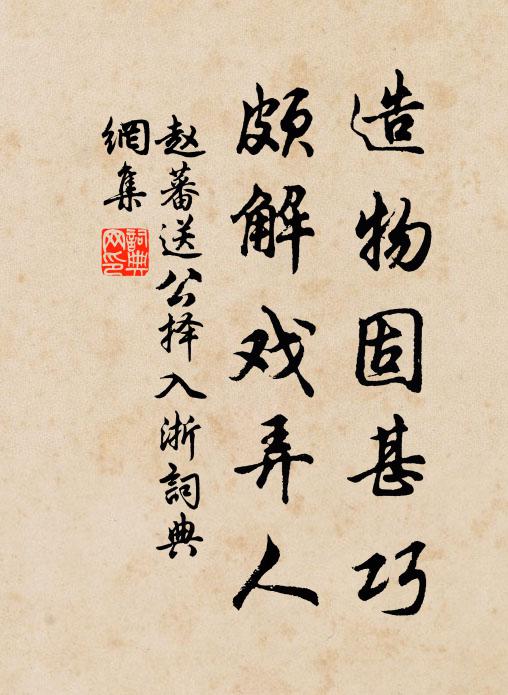 造物固甚巧
颇解戏弄人
赵蕃送公择入浙詞典
網集
詞典網印